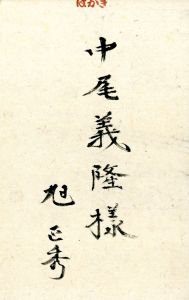 はがき
中尾義隆様
旭正秀